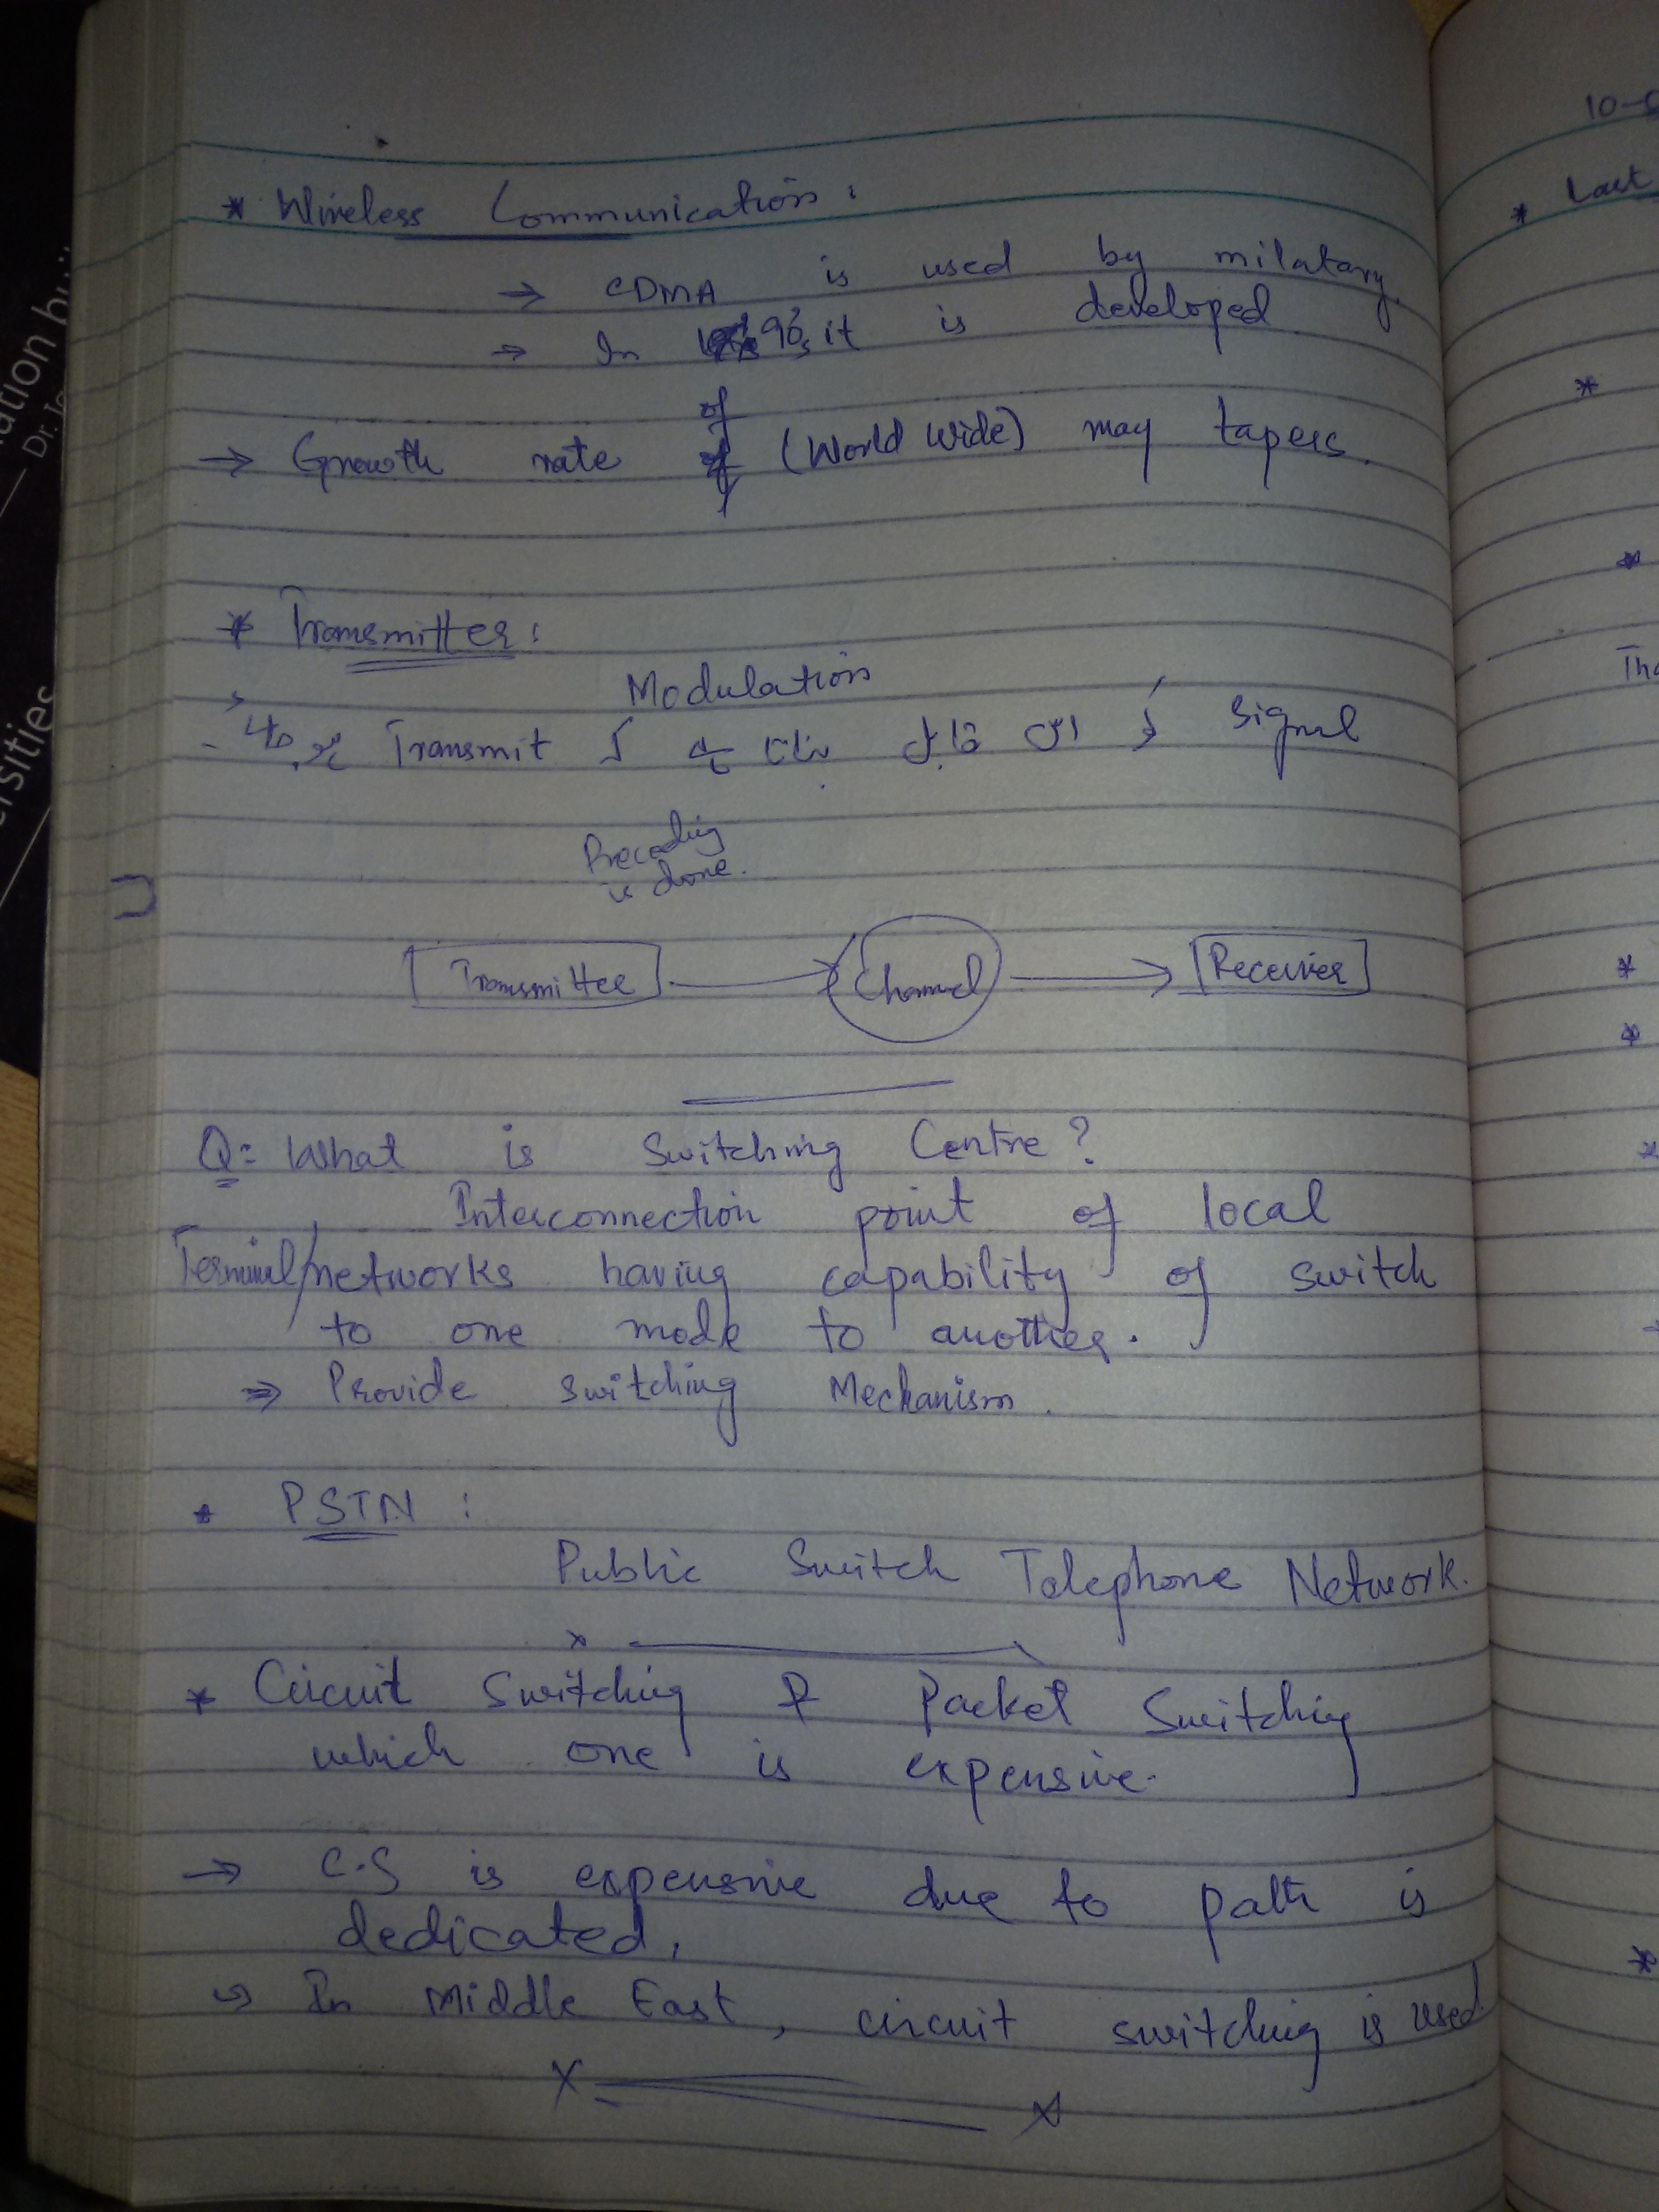 * Wireless Communication:
→ CDMA is used by milatary.
→ In 90's it is developed
of
→ Growth rate of (World Wide) may tapers.
* Transmitter:
Modulation
Signal کو اس قابل بناتا ہے کہ Transmit
Precoding
is done.
Transmitter → Channel → Receiver
Q: What is Switching Centre?
Interconnection point of local
Terminal/networks having capability of switch
to one mode to another.
⇒ Provide switching Mechanism.
* PSTN:
Public Switch Telephone Network.
* Circuit Switching & Packet Switching
which one is expensive.
→ C.S is expensive due to path is
dedicated.
→ In Middle East, circuit switching is used.
10-
* Last
Tha
ation
Dr.
ersities